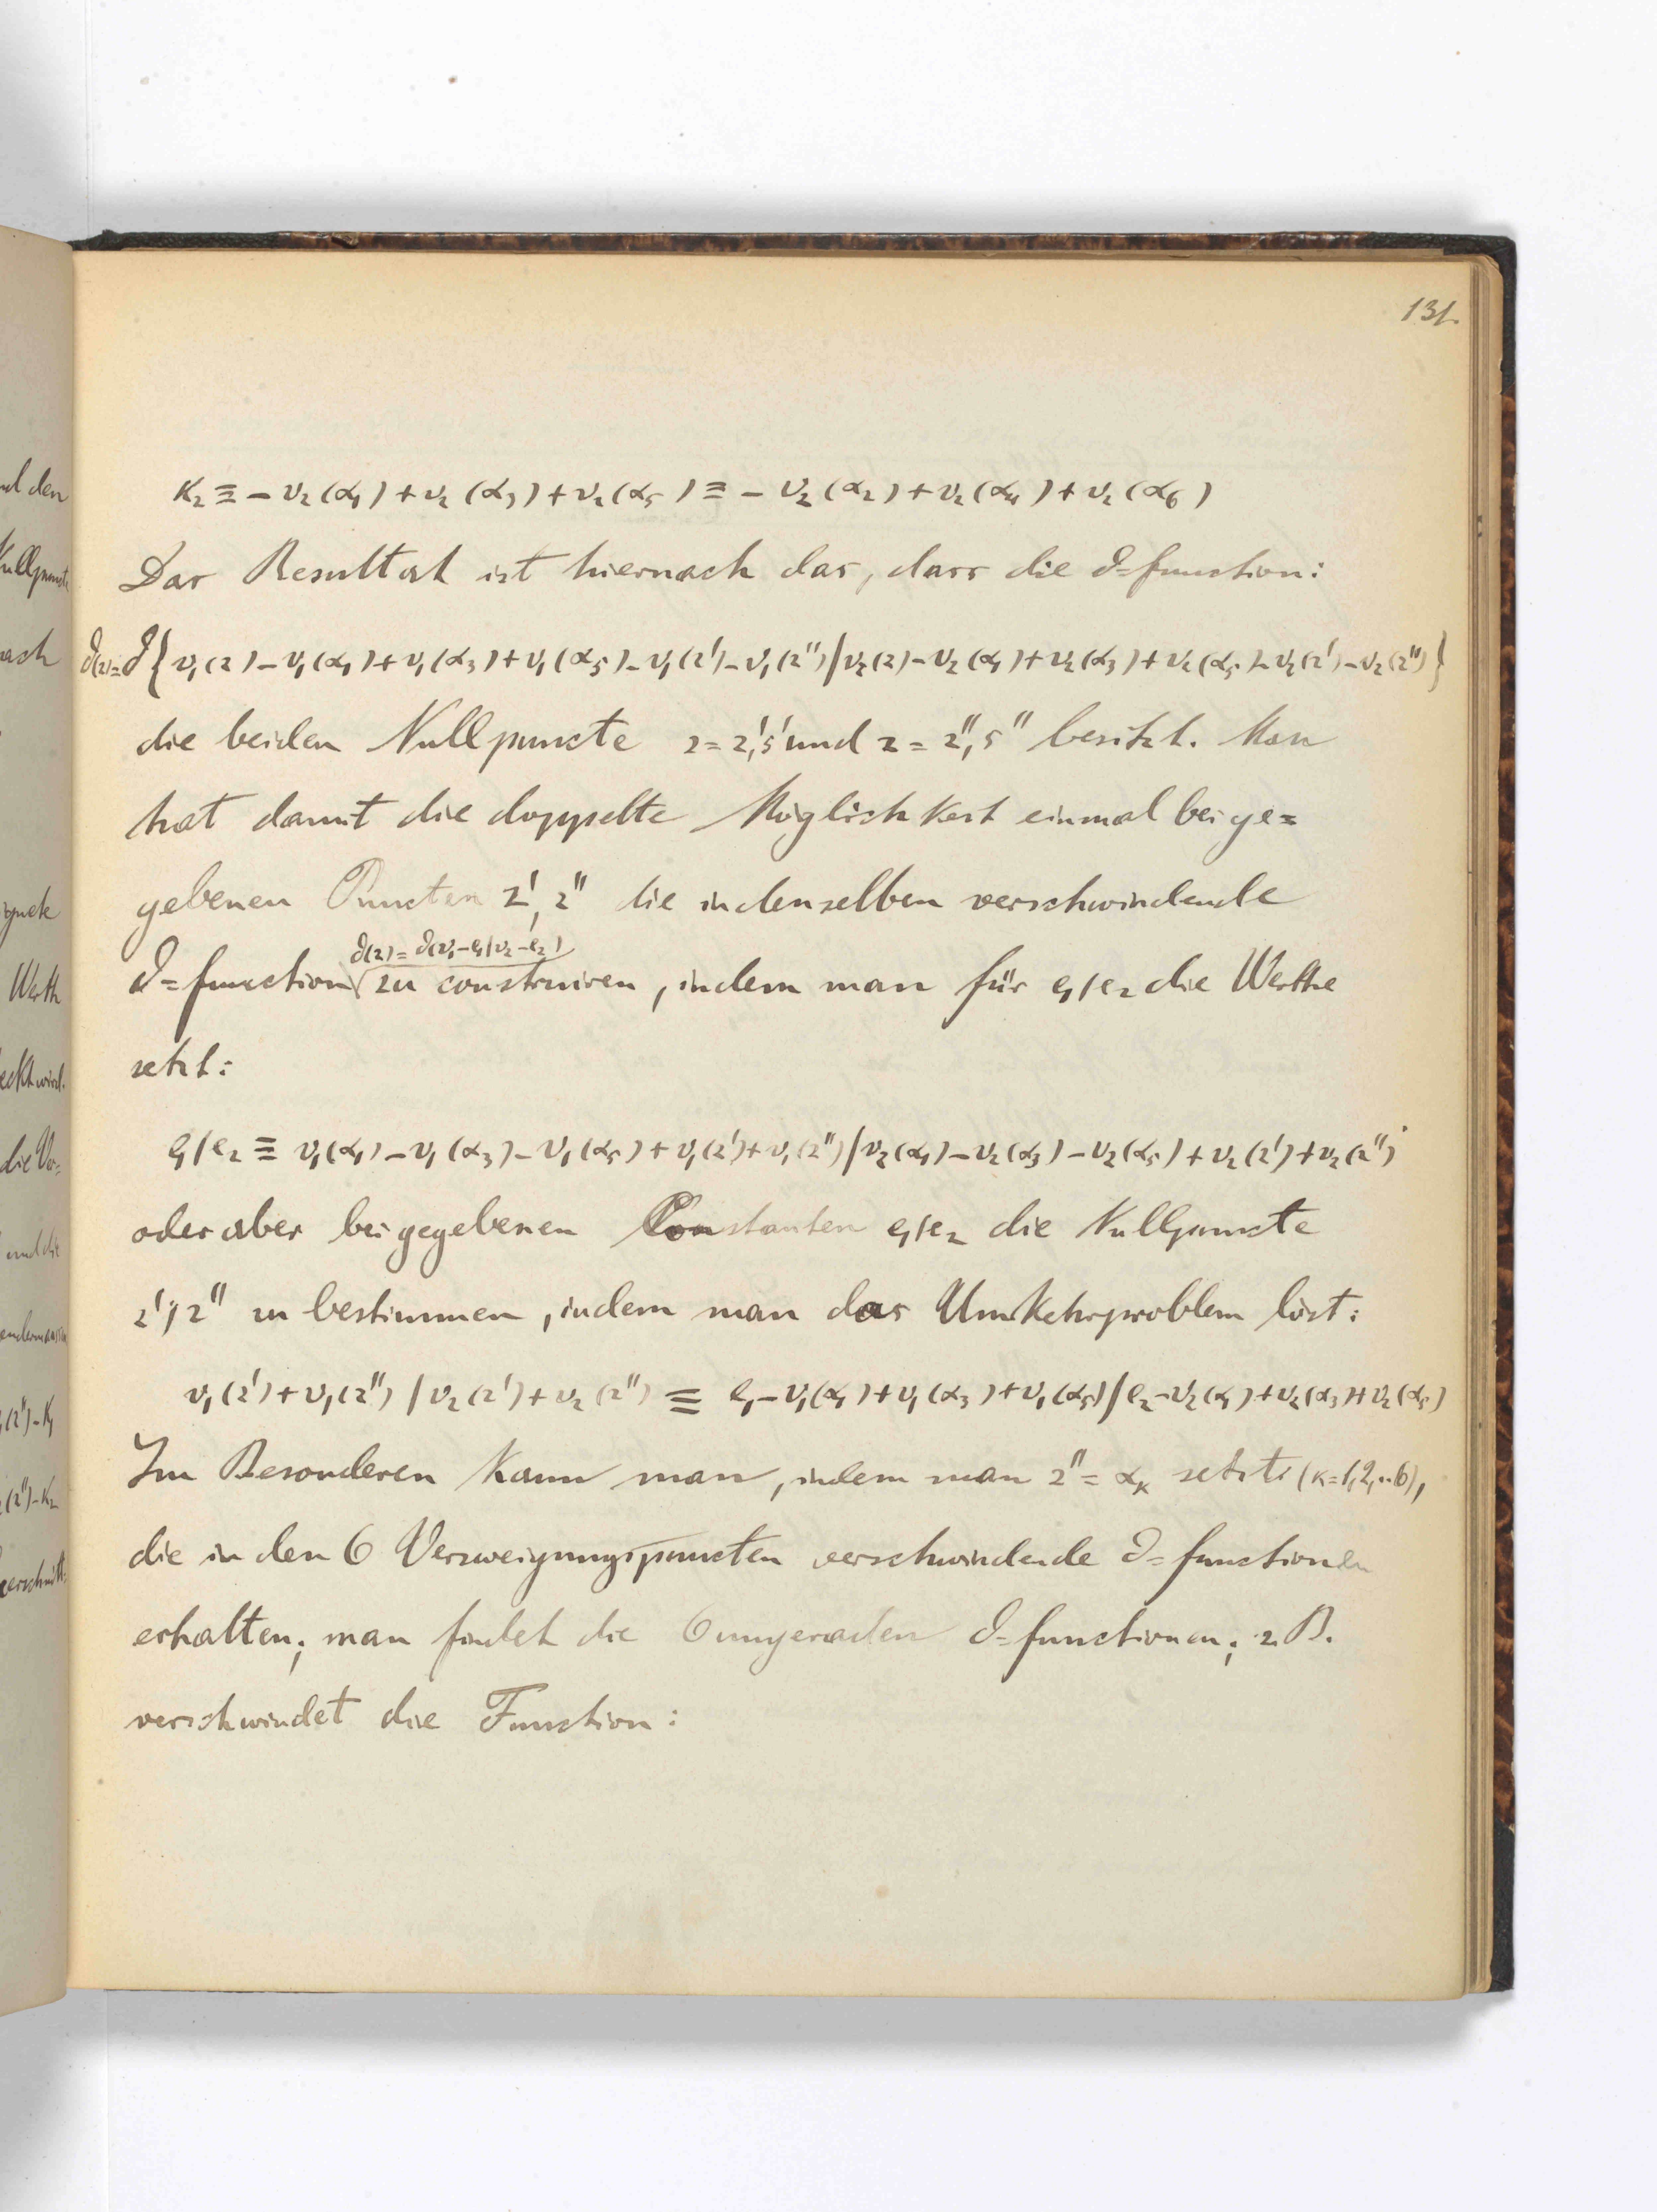 131.
K₂ ≡ − v₂(α₁) + v₂(α₃) + v₂(α₅) ≡ − v₂(α₂) + v₂(α₄) + v₂(α₆)
Das Resultat ist hiernach das, dass die ϑ=function:
ϑ(z)=ϑ{v₁(z)−v₁(α₁)+v₁(α₃)+v₁(α₅)−v₁(z')−v₁(z'')/v₂(z)−v₂(α₁)+v₂(α₃)+v₂(α₅)−v₂(z')−v₂(z'')}
die beiden Nullpuncte z=z',s' und z=z'',s'' besitzt. Man
hat damit die doppelte Möglichkeit einmal bei ge=
gebenen Puncten z', z'' die in denselben verschwindende
ϑ(z)=ϑ(v₁−e₁/v₂−e₂)
ϑ=function zu construiren, indem man für e₁/e₂ die Werthe
setzt:
e₁/e₂ ≡ v₁(α₁)−v₁(α₃)−v₁(α₅)+v₁(z')+v₁(z'')/v₂(α₁)−v₂(α₃)−v₂(α₅)+v₂(z')+v₂(z'')
oder aber bei gegebenen Constanten e₁/e₂ die Nullpuncte
z'/z'' zu bestimmen, indem man das Umkehrproblem löst:
v₁(z')+v₁(z'')/v₂(z')+v₂(z'') ≡ e₁−v₁(α₁)+v₁(α₃)+v₁(α₅)/e₂−v₂(α₁)+v₂(α₃)+v₂(α₅)
Im Besonderen kann man, indem man z''=αₖ setzt (k=1,2,..6),
die in den 6 Verzweigungspuncten verschwindende ϑ=functionen
erhalten; man findet die 6 ungeraden ϑ=functionen; z.B.
verschwindet die Function: